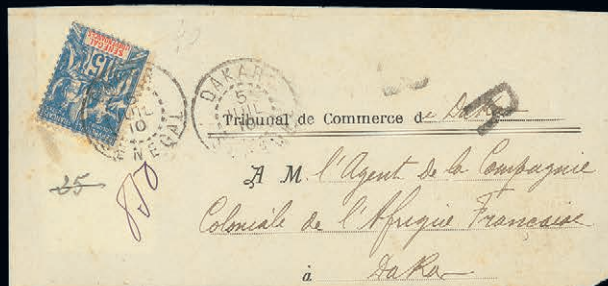 SÉNÉGAL
15
DAKAR
5
JUIL
10
SÉNÉGAL
DAKAR
5
JUIL
10
R
Tribunal de Commerce de Dakar
25
A M. l'Agent de la Compagnie
Coloniale de l'Afrique Française
à Dakar